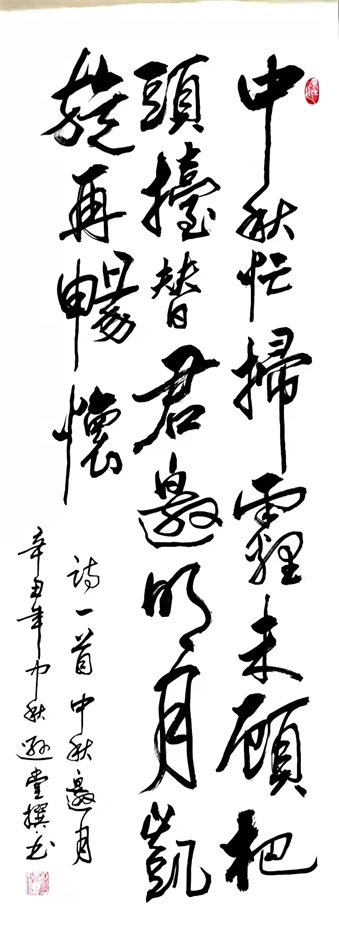 中秋忙掃霾未顧把
頭擡替君邀明月凱
旋再暢懷
詩一首中秋邀月
辛丑年中秋遜堂撰书